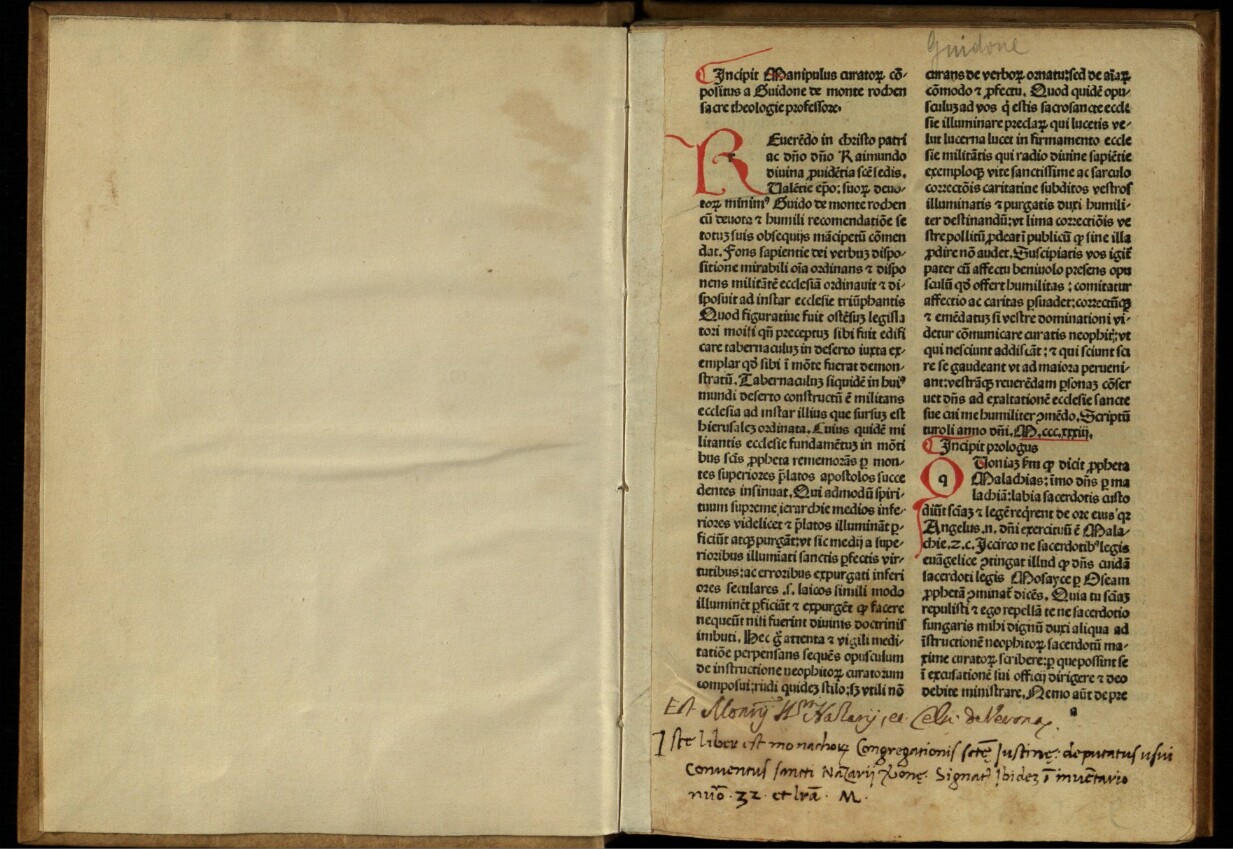 Guidone
Incipit Manipulus curatoꝝ cõ-
positus a Guidone de monte rochen
sacre theologie professore.
REuerẽdo in christo patri
ac dño dño Raimundo
diuina ꝓuidẽtia scẽ sedis.
Ualẽtie ep̃o: suoꝝ deuo-
toꝝ minimꝰ Guido de monte rochen
cũ deuota ⁊ humili recomendatiõe se
totuꝫ suis obsequijs mãcipetũ cõmen
dat. Fons sapientie dei verbuꝫ dispo-
sitione mirabili oĩa ordinans ⁊ dispo
nens militãtẽ ecclesiã ordinauit ⁊ di-
sposuit ad instar ecclesie triũphantis
Quod figuratiue fuit ostẽsuꝫ legisla
tori moisi qñ preceptuꝫ sibi fuit edifi
care tabernaculuꝫ in deserto iuxta ex-
emplar qd̕ sibi ĩ mõte fuerat demon-
stratũ. Tabernaculuꝫ siquidẽ in huiꝰ
mundi deserto constructũ ẽ militans
ecclesia ad instar illius que sursuꝫ est
hierusaleꝫ ordinata. Cuius quidẽ mi
litantis ecclesie fundamẽtuꝫ in mõti
bus scĩs ꝓpheta rememorãs ꝑ mon-
tes superiores p̃latos apostolos succe
dentes insinuat. Qui admodũ spiri-
tuum supreme ierarchie medios infe-
riores videlicet ⁊ p̃latos illuminãt ꝑ-
ficiũt atqꝫ purgãt: vt sic medij a supe-
rioribus illumĩati sanctis ꝑfectis vir-
tutibus: ac erroribus expurgati inferi
ores seculares .s. laicos simili modo
illuminẽt ꝑficiãt ⁊ expurgẽt qꝫ facere
nequeũt nisi fuerint diuinis doctrinis
imbuti. Hec g̃ attenta ⁊ vigili medi-
tatiõe perpensans sequẽs opusculum
de instructione neophitoꝝ curatorum
composui: rudi quideꝫ stilo: sꝫ vtili nõ
curans de verboꝝ ornatu: sed de aĩaꝝ
cõmodo ⁊ ꝓfectu. Quod quidẽ opu-
sculuꝫ ad vos q̃ estis sacrosancte eccle
sie illuminare preclaꝝ qui lucetis ve-
lut lucerna lucet in firmamento eccle
sie militãtis qui radio diuine sapiẽtie
exemploqꝫ vite sanctissime ac sarculo
correctõis caritatiue subditos vestros
illuminatis ⁊ purgatis duxi humili-
ter destinandũ: vt lima correctiõis ve
stre pollitũ ꝓdeat ĩ publicũ qꝫ sine illa
ꝓdire nõ audet. Suscipiatis vos igit̃
pater cũ affectu beniuolo presens opu
sculũ qd̕ offert humilitas: comitatur
affectio ac caritas ꝑsuadet: correctũqꝫ
⁊ emẽdatuꝫ si vestre dominationi vi-
detur cõmunicare curatis neophit̕: vt
qui nesciunt addiscãt: ⁊ qui sciunt sci
re se gaudeant vt ad maiora perueni-
ant: vestrãqꝫ reuerẽdam ꝑsonaꝫ cõser
uet dñs ad exaltationẽ ecclesie sancte
sue cui me humiliter ꝯmẽdo. Scriptũ
turoli anno dñi. M.ccc.xxxiij.
Incipit prologus
QUoniaꝫ km̃ qꝫ dicit ꝓpheta
Malachias: ĩmo dñs ꝑ ma
lachiã: labia sacerdotis custo
diũt sciãꝫ ⁊ legẽ req̃rent de ore eius qꝛ
Angelus .n. dñi exercituũ ẽ Mala-
chie .2. c. Iccirco ne sacerdotibꝰ legis
euãgelice ꝯtingat illud qꝫ dñs cuidã
sacerdoti legis Mosayce ꝑ Oseam
ꝓphetã ꝯminat̃ dicẽs. Quia tu sciãꝫ
repulisti ⁊ ego repellã te ne sacerdotio
fungaris mihi dignũ duxi aliqua ad
ĩstructionẽ neophitoꝝ sacerdotũ ma-
xime curatoꝝ scribere: ꝑ que possint se
ĩ excusationẽ sui officij dirigere ⁊ deo
debite ministrare. Nemo aũt depre
a
Est Monrij Naẓarij, et Celsi de Verona.
Iste liber est monachoꝝ Congregationis sctę Justinę: deputatus usui
Conuentus sancti Nazarij Veronę. Signat̃ ibideꝫ ĩ inuẽtario
nũo . 32 . et lrã . M .